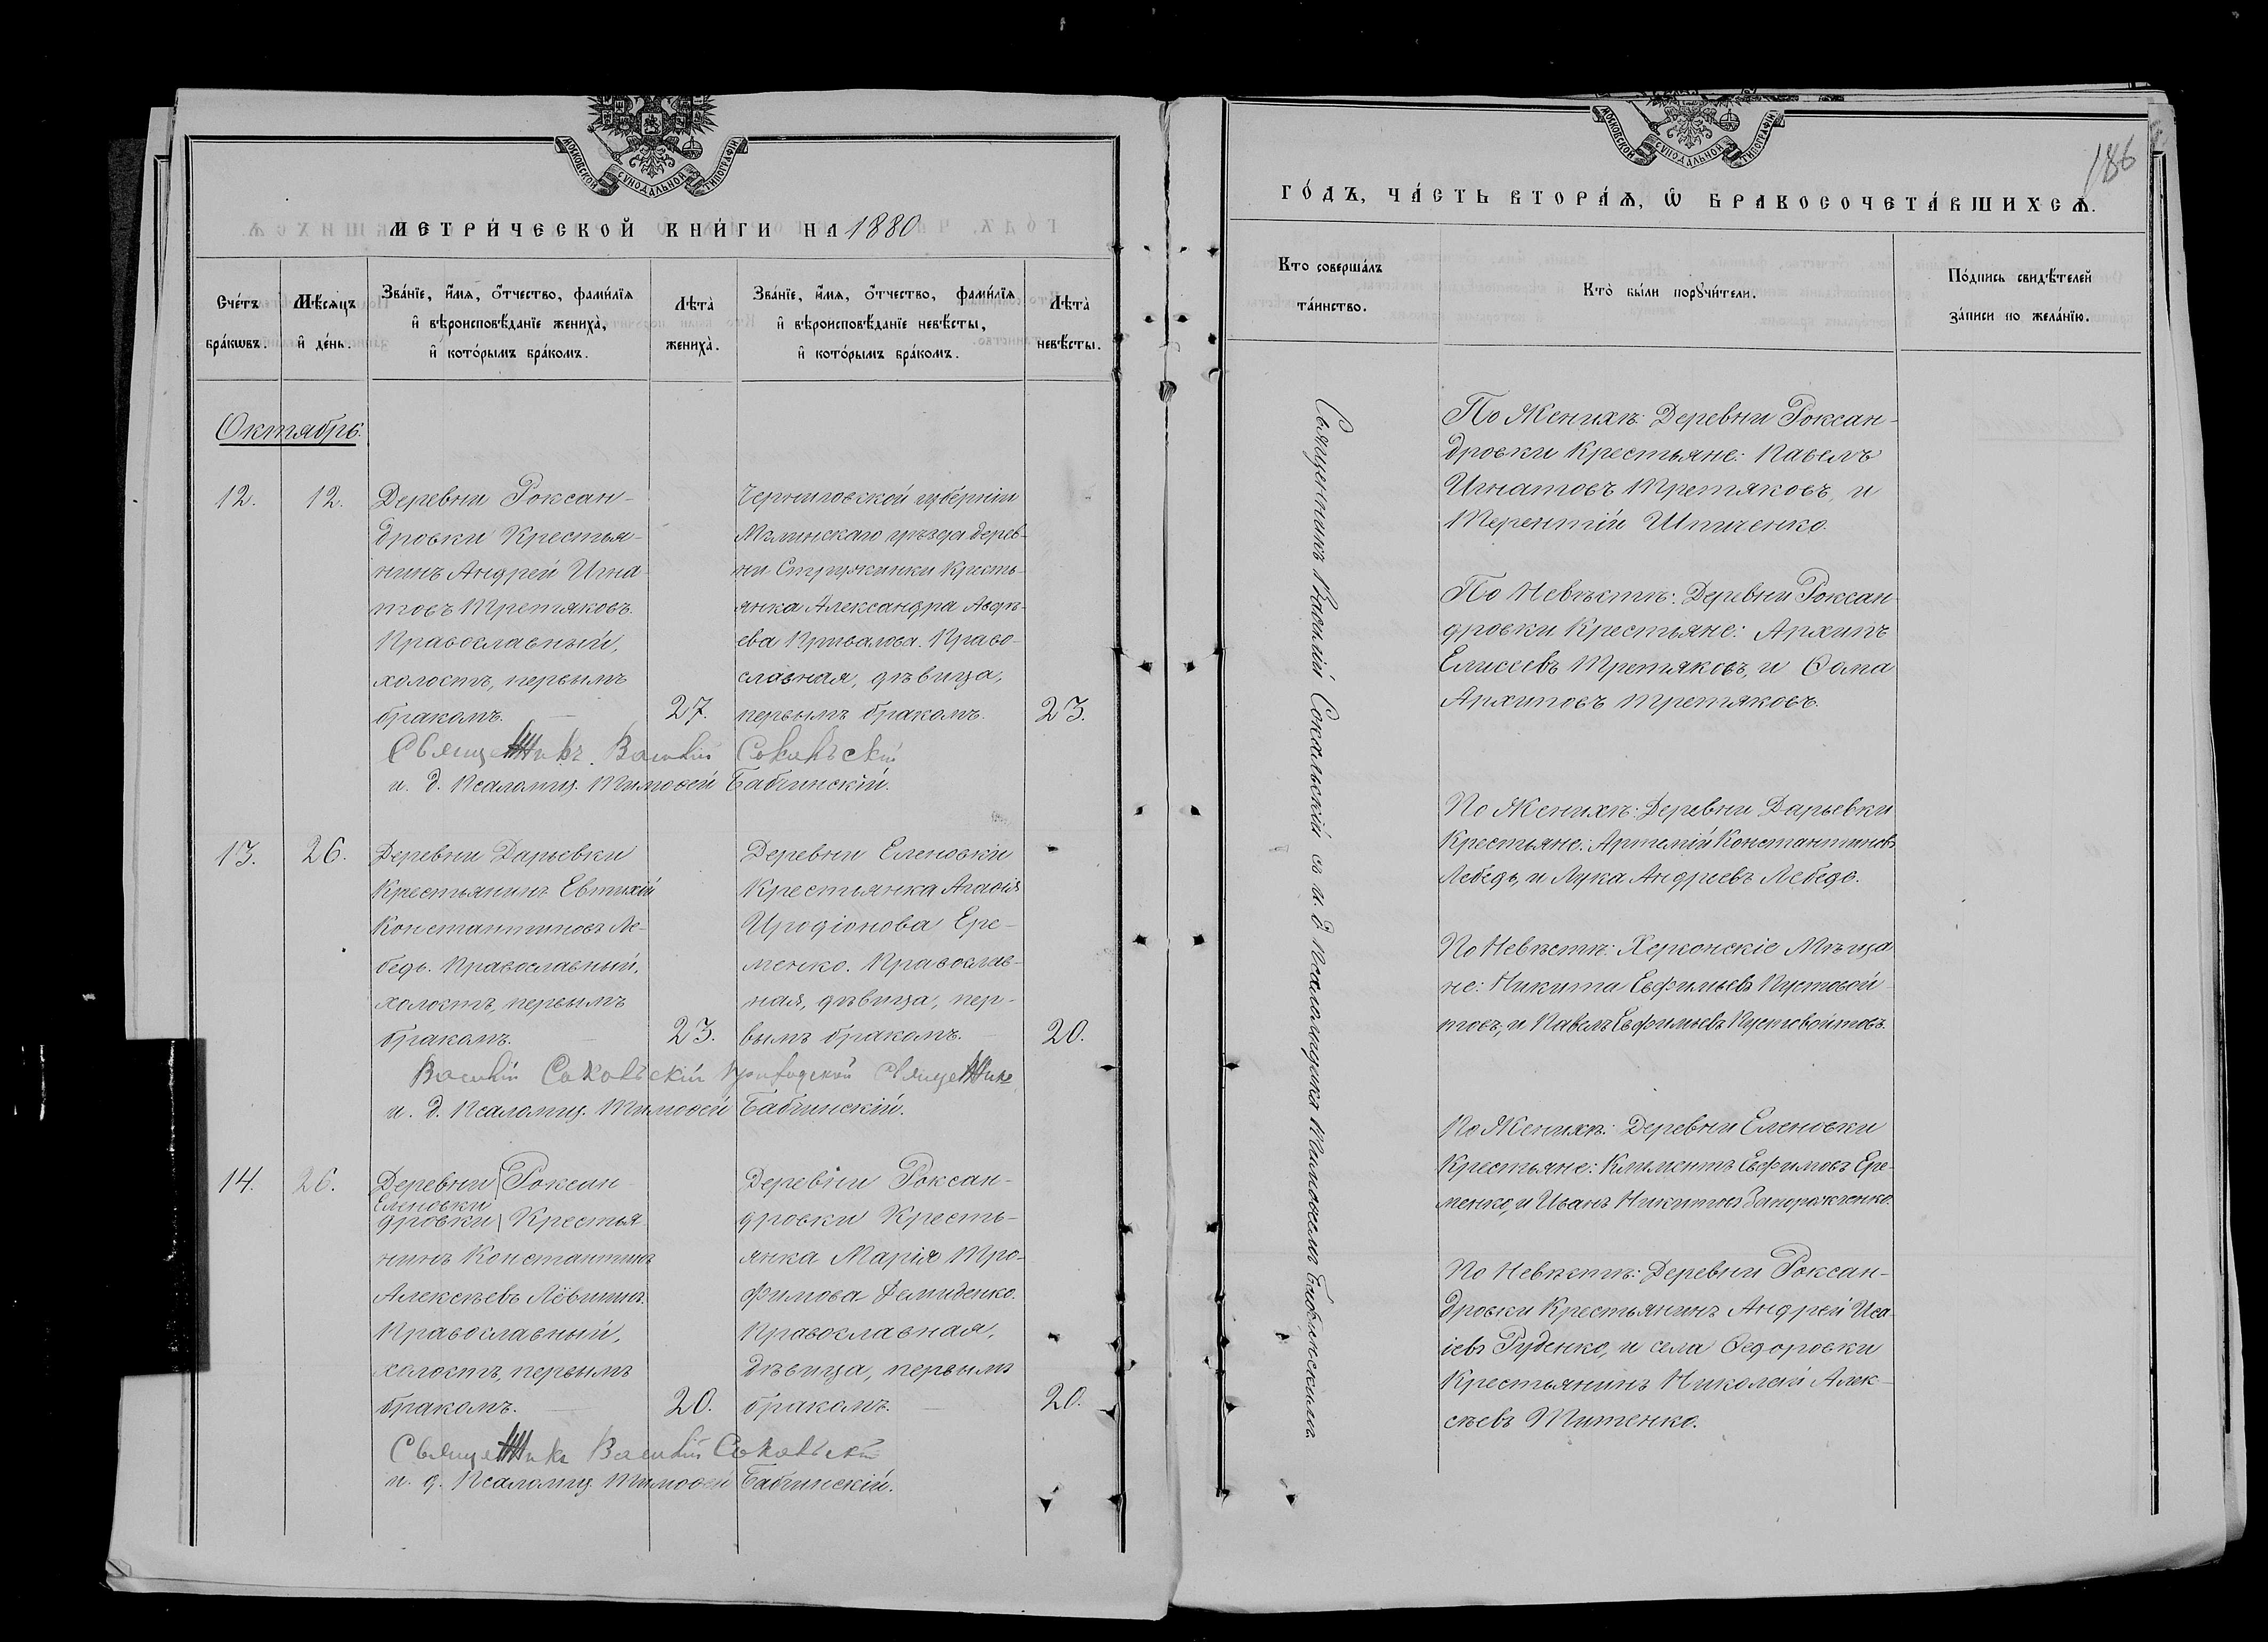 МОСКОВСКОЙ СѴНОДАЛЬНОЙ ТИПОГРАФІИ
МЕТРИ́ЧЕСКОЙ КНИ́ГИ НА 1880
Сче́тъ бра́кѡвъ.
Мѣ́сяцъ и҆ де́нь.
Зва́нїе, и҆́мя, ѻ҆́тчество, фами́лїя и҆ вѣроисповѣ́данїе жениха̀, и҆ кото́рымъ бра́комъ.
Лѣта̀ жениха̀.
Зва́нїе, и҆́мя, ѻ҆́тчество, фами́лїя и҆ вѣроисповѣ́данїе невѣ́сты, и҆ кото́рымъ бра́комъ.
Лѣта̀ невѣ́сты.
Октябрь.
12.
12.
Деревни Роксан-
дровки Крестья-
нинъ Андрей Игна-
товъ Третяковъ.
Православный,
холостъ, первымъ
бракомъ.
27.
Черниговской губерніи
Мглинскаго уѣзда дерев-
ни Стружкинки Кресть-
янка Александра Авдѣ-
ева Привалова. Право-
славная, дѣвица,
первымъ бракомъ.
23.
Священникъ Василій Сокальскій
и. д. Псаломщ. Тимоѳей Бабчинскій.
13.
26.
Деревни Дарьевки
Крестьянинъ Евтихій
Константиновъ Ле-
бедь. Православный,
холостъ, первымъ
бракомъ.
23.
Деревни Еленовки
Крестьянка Агаѳія
Иродіонова Ере-
менко. Православ-
ная, дѣвица, пер-
вымъ бракомъ.
20.
Василій Сокальскій Приходской Священникъ
и. д. Псаломщ. Тимоѳей Бабчинскій.
14.
26.
Деревни Роксан-
Еленовки
дровки Крестья-
нинъ Константинъ
Алексѣевъ Лёвшинъ.
Православный,
холостъ, первымъ
бракомъ.
20.
Деревни Роксан-
дровки Кресть-
янка Марія Тро-
фимова Демиденко.
Православная,
Дѣвица, первымъ
бракомъ.
20.
Священникъ Василій Сокальскій
и. д. Псаломщ. Тимоѳей Бабчинскій.
МОСКОВСКОЙ СѴНОДАЛЬНОЙ ТИПОГРАФІИ
186
ГО́ДЪ, ЧА́СТЬ ВТОРА́Ѧ, Ѽ БРАКОСОЧЕТА́ВШИХСѦ.
Кто соверша́лъ та́инство.
Кто̀ бы́ли порꙋчи́тели.
По́дпись свидѣ́телей за́писи по жела́нїю.
Священникъ Василій Сокальскій съ и. д. псаломщика Тимоѳеемъ Бабчинскимъ.
По Женихѣ: Деревни Роксан-
дровки Крестьяне: Павелъ
Игнатовъ Третяковъ, и
Терентій Шпиченко.
По Невѣстѣ: Деревни Роксан-
дровки Крестьяне: Архипъ
Елисеевъ Третяковъ, и Ѳома
Архиповъ Третяковъ.
По Женихѣ: Деревни Дарьевки
Крестьяне: Артемій Константиновъ
Лебедь, и Лука Андреевъ Лебедь.
По Невѣстѣ: Херсонскіе Мѣща
не: Никита Евфимьевъ Пустовой-
товъ, и Павелъ Евфимьевъ Пустовойтовъ.
По Женихѣ: Деревни Еленовки
Крестьяне: Климентъ Евфимовъ Ере-
менко, и Иванъ Никитовъ Запорожченко.
По Невѣстѣ: Деревни Роксан-
дровки Крестьянинъ Андрей Иса-
іевъ Руденко, и села Ѳедоровки
Крестьянинъ Николай Алек-
сѣевъ Титенко.